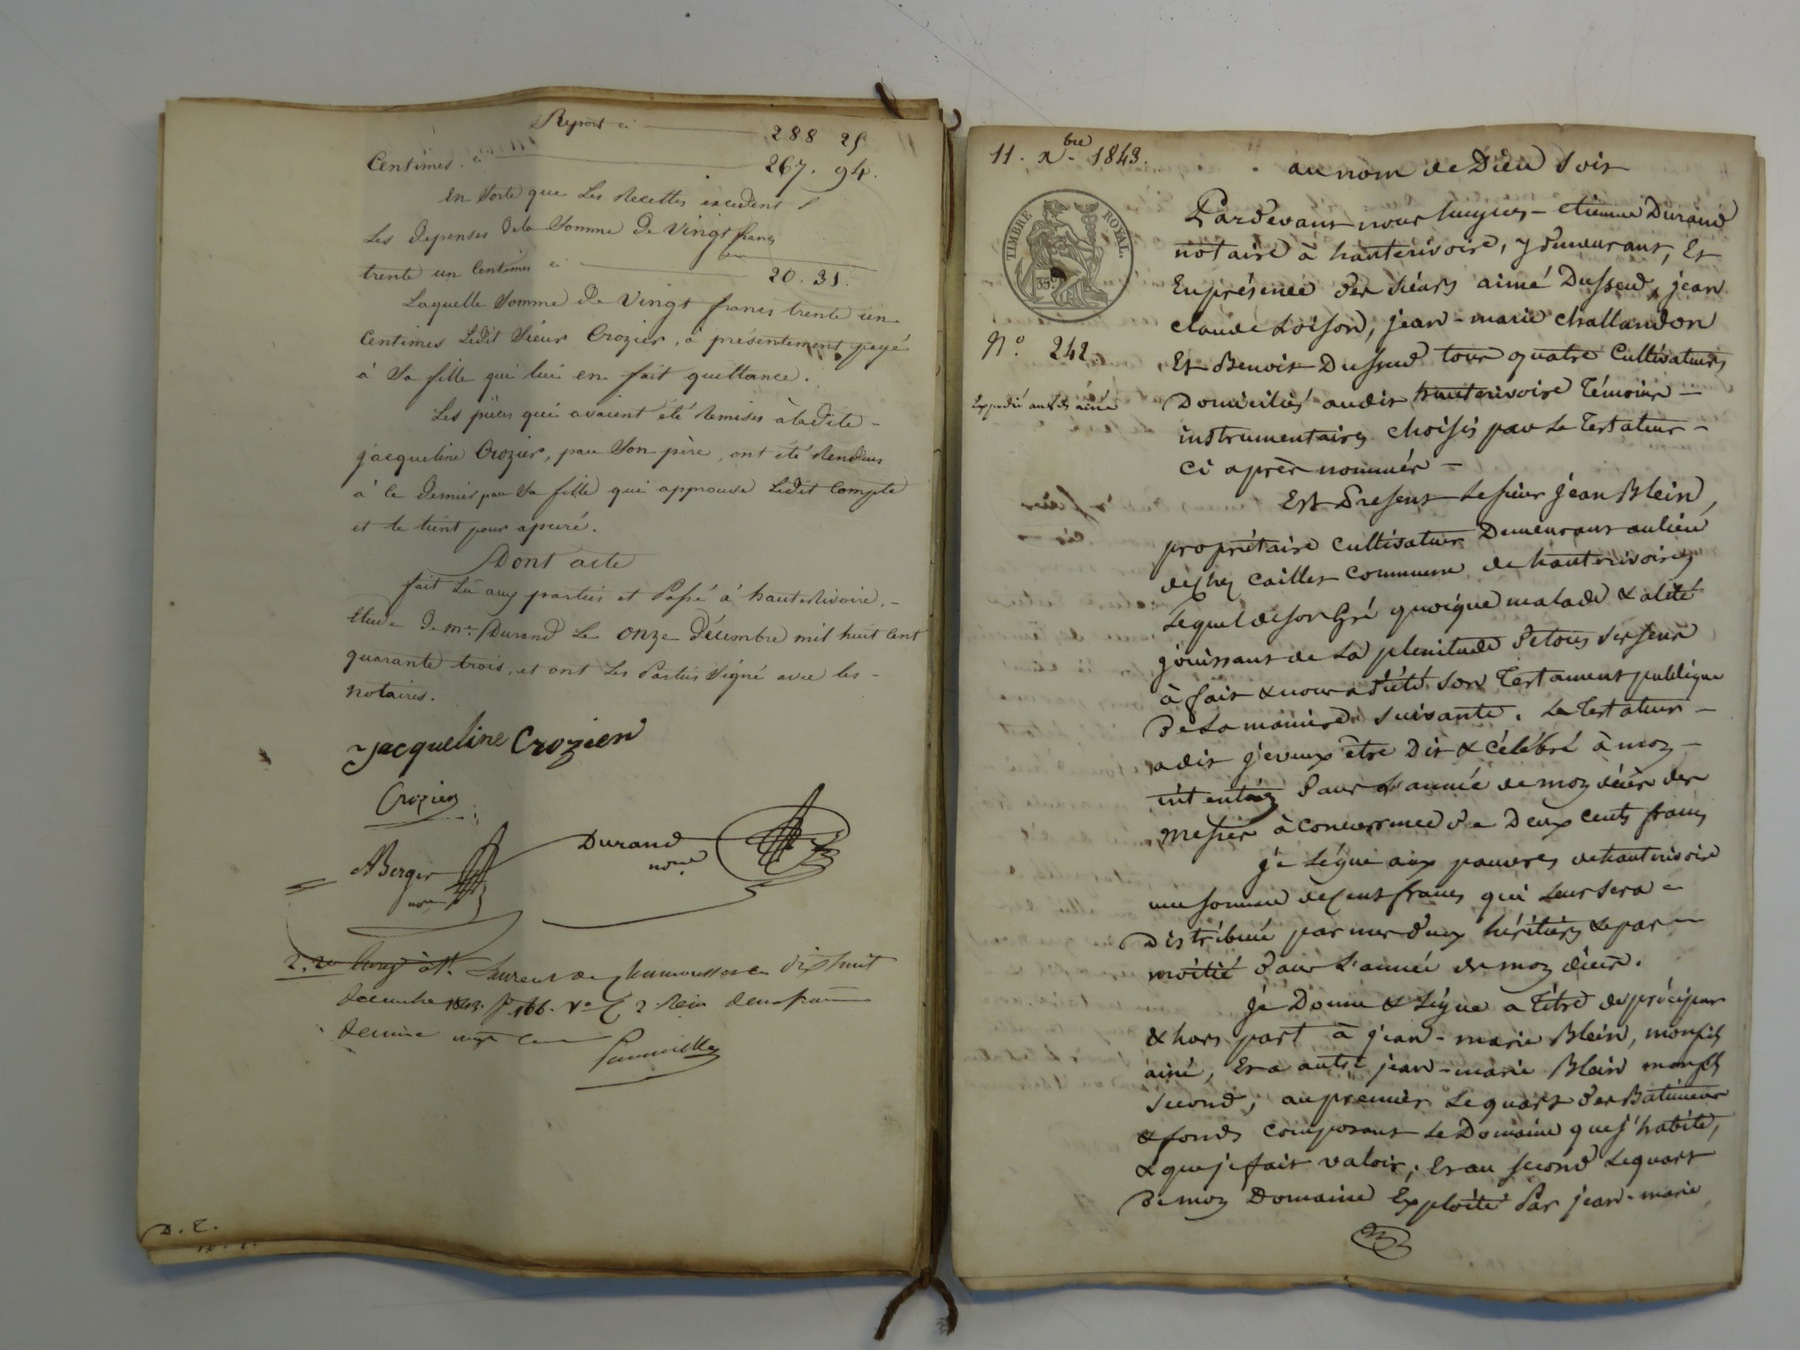 Report ci 288 25
Centimes. ci 267. 94.
En sorte que Les Recettes excedent
Les depenses dela Somme de Vingt francs
trente un Centimes ci 20. 31.
Laquelle Somme de Vingt francs trente un
Centimes Ledit Sieur Crozier, a présentement payé
à Sa fille qui lui en fait quittance.
Les pièces qui avaient été Remises à ladite -
jacqueline Crozier, par Son père, ont été Rendues
à ce dernier par Sa fille qui approuve Ledit Compte
et le tient pour apuré.
Dont acte
fait Lu aux parties et Passé à hauterivoire, -
Etude de me. Durand Le onze Décembre mil huit Cent
quarante trois, et ont Les Parties Signé avec les -
notaires.
Jacqueline Crozier
Crozier
ABerger
nore
Durand
nore.
à St. Laurent de Chamousset Le dix huit
décembre 1843. fo. 166. Vo. C. 2. Reçu deux francs
decime vingt
D. E.
11. Xbre 1843.
au nom de Dieu Soit
TIMBRE ROYAL
35c
Pardevant nous etienne Durand
notaire à hauterivoire, y demeurant, Et
En présence des Siéurs aimé Dussud, jean
claude Loison, jean-marie challandon
Et Benoit Dussud tous quatre Cultivateurs
No. 242
Expedié au fils ainé
Domiciliés audit hauterivoire Témoins -
instrumentaires choisis par Le Testateur -
ci après nommés -
Est Présent Le sieur jean Blein,
propriétaire cultivateur Demeurant au lieu
de chez cailles Commune de hauterivoire
Lequel de son gré quoique malade & alité
jouissant de La plenitude de tous ses sens
à fait & nous a dicté son Testament publique
De La manière suivante. Le Testateur -
a dit je veux être Dit & célébré à moy -
intention dans L'année de moy décès des
Messes à concurrence de Deux cents francs
je Légue aux pauvres de hauterivoire
une somme de Cent francs qui Leur sera -
Distribuée par mes deux héritiers & par -
moitié dans L'année de moy décès.
je Donne & Légue a titre de préciput
& hors part à jean-marie Blein, mon fils
ainé, Et a autre jean-marie Blein mon fils
second; au premier Le quart des Batimens
& fonds composant Le Domaine que j'habite,
& que je fait valoir, Et au second Le quart
De moy Domaine Exploité Par jean-marie